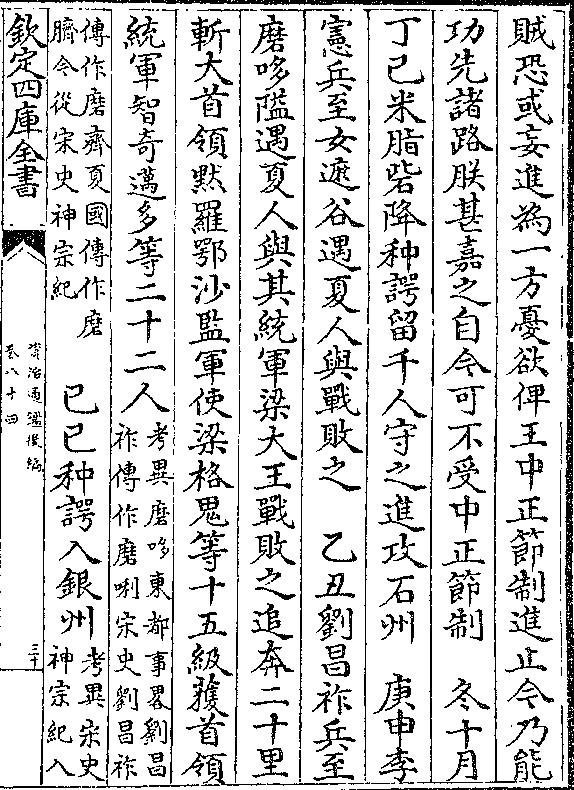 賊恐或妄進為一方憂欲俾王中正節制進止今乃能
功先諸路朕甚嘉之自今可不受中正節制　冬十月
丁巳米脂砦降种諤留千人守之進攻石州　庚申李
憲兵至女遮谷遇夏人與戰敗之　乙丑劉昌祚兵至
磨哆隘遇夏人與其統軍梁大王戰敗之追奔二十里
斬大首領黙羅鄂沙監軍使梁格嵬等十五級獲首領
統軍智竒邁多等二十二人考異磨哆東都事畧劉昌祚傳作磨唎宋史劉昌祚
傳作磨齊夏國傳作磨臍今從宋史神宗紀　已巳种諤入銀州考異宋史神宗紀入
欽定四庫全書
資治通鑑後編
卷八十四
三十